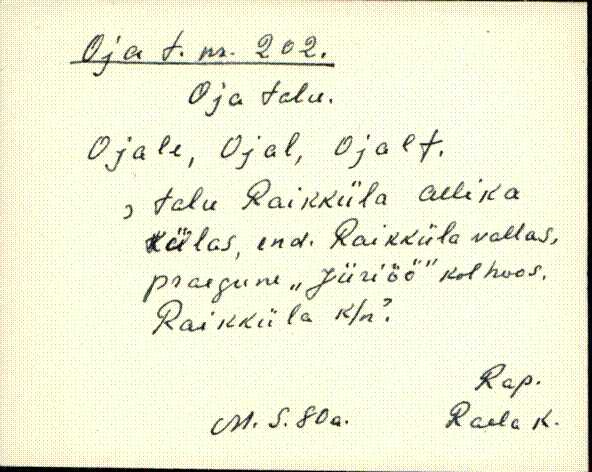 Oja t. nr. 202.
Oja talu.
Ojale, Ojal, Ojalt.
, talu Raikküla Allika
külas, end. Raikküla vallas,
praegune „Jüriöö" kolhoos.
Raikküla k/n?
Rap.
M. S. 80a. Raela K.